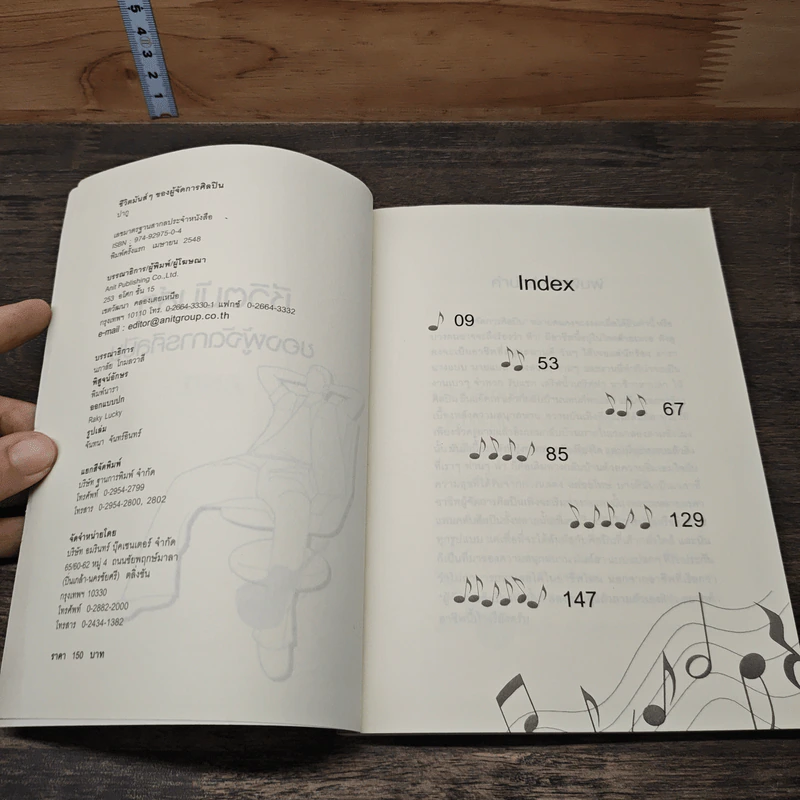 ชีวิตมันส์ๆ ของผู้จัดการศิลปิน
ปาฏู
เลขมาตรฐานสากลประจำหนังสือ
ISBN : 974-92975-0-4
พิมพ์ครั้งแรก เมษายน 2548
บรรณาธิการ/ผู้พิมพ์/ผู้โฆษณา
Anit Publishing Co.,Ltd.
253 อโศก ชั้น 15
เขตวัฒนา คลองเตยเหนือ
กรุงเทพฯ 10110 โทร. 0-2664-3330-1 แฟกซ์ 0-2664-3332
e-mail : editor@anitgroup.co.th
บรรณาธิการ
นภาลัย โกมลวาสี
พิสูจน์อักษร
พิมพ์นารา
ออกแบบปก
Raky Lucky
รูปเล่ม
จันทนา จันทร์อินทร์
แยกสีจัดพิมพ์
บริษัท ฐานการพิมพ์ จำกัด
โทรศัพท์ 0-2954-2799
โทรสาร 0-2954-2800, 2802
จัดจำหน่ายโดย
บริษัท อมรินทร์ บุ๊คเซนเตอร์ จำกัด
65/60-62 หมู่ 4 ถนนชัยพฤกษ์มาลา
(ปิ่นเกล้า-นครชัยศรี) ตลิ่งชัน
กรุงเทพฯ 10330
โทรศัพท์ 0-2882-2000
โทรสาร 0-2434-1382
ราคา 150 บาท
Index
09
53
67
85
129
147
5 4 3 2 1